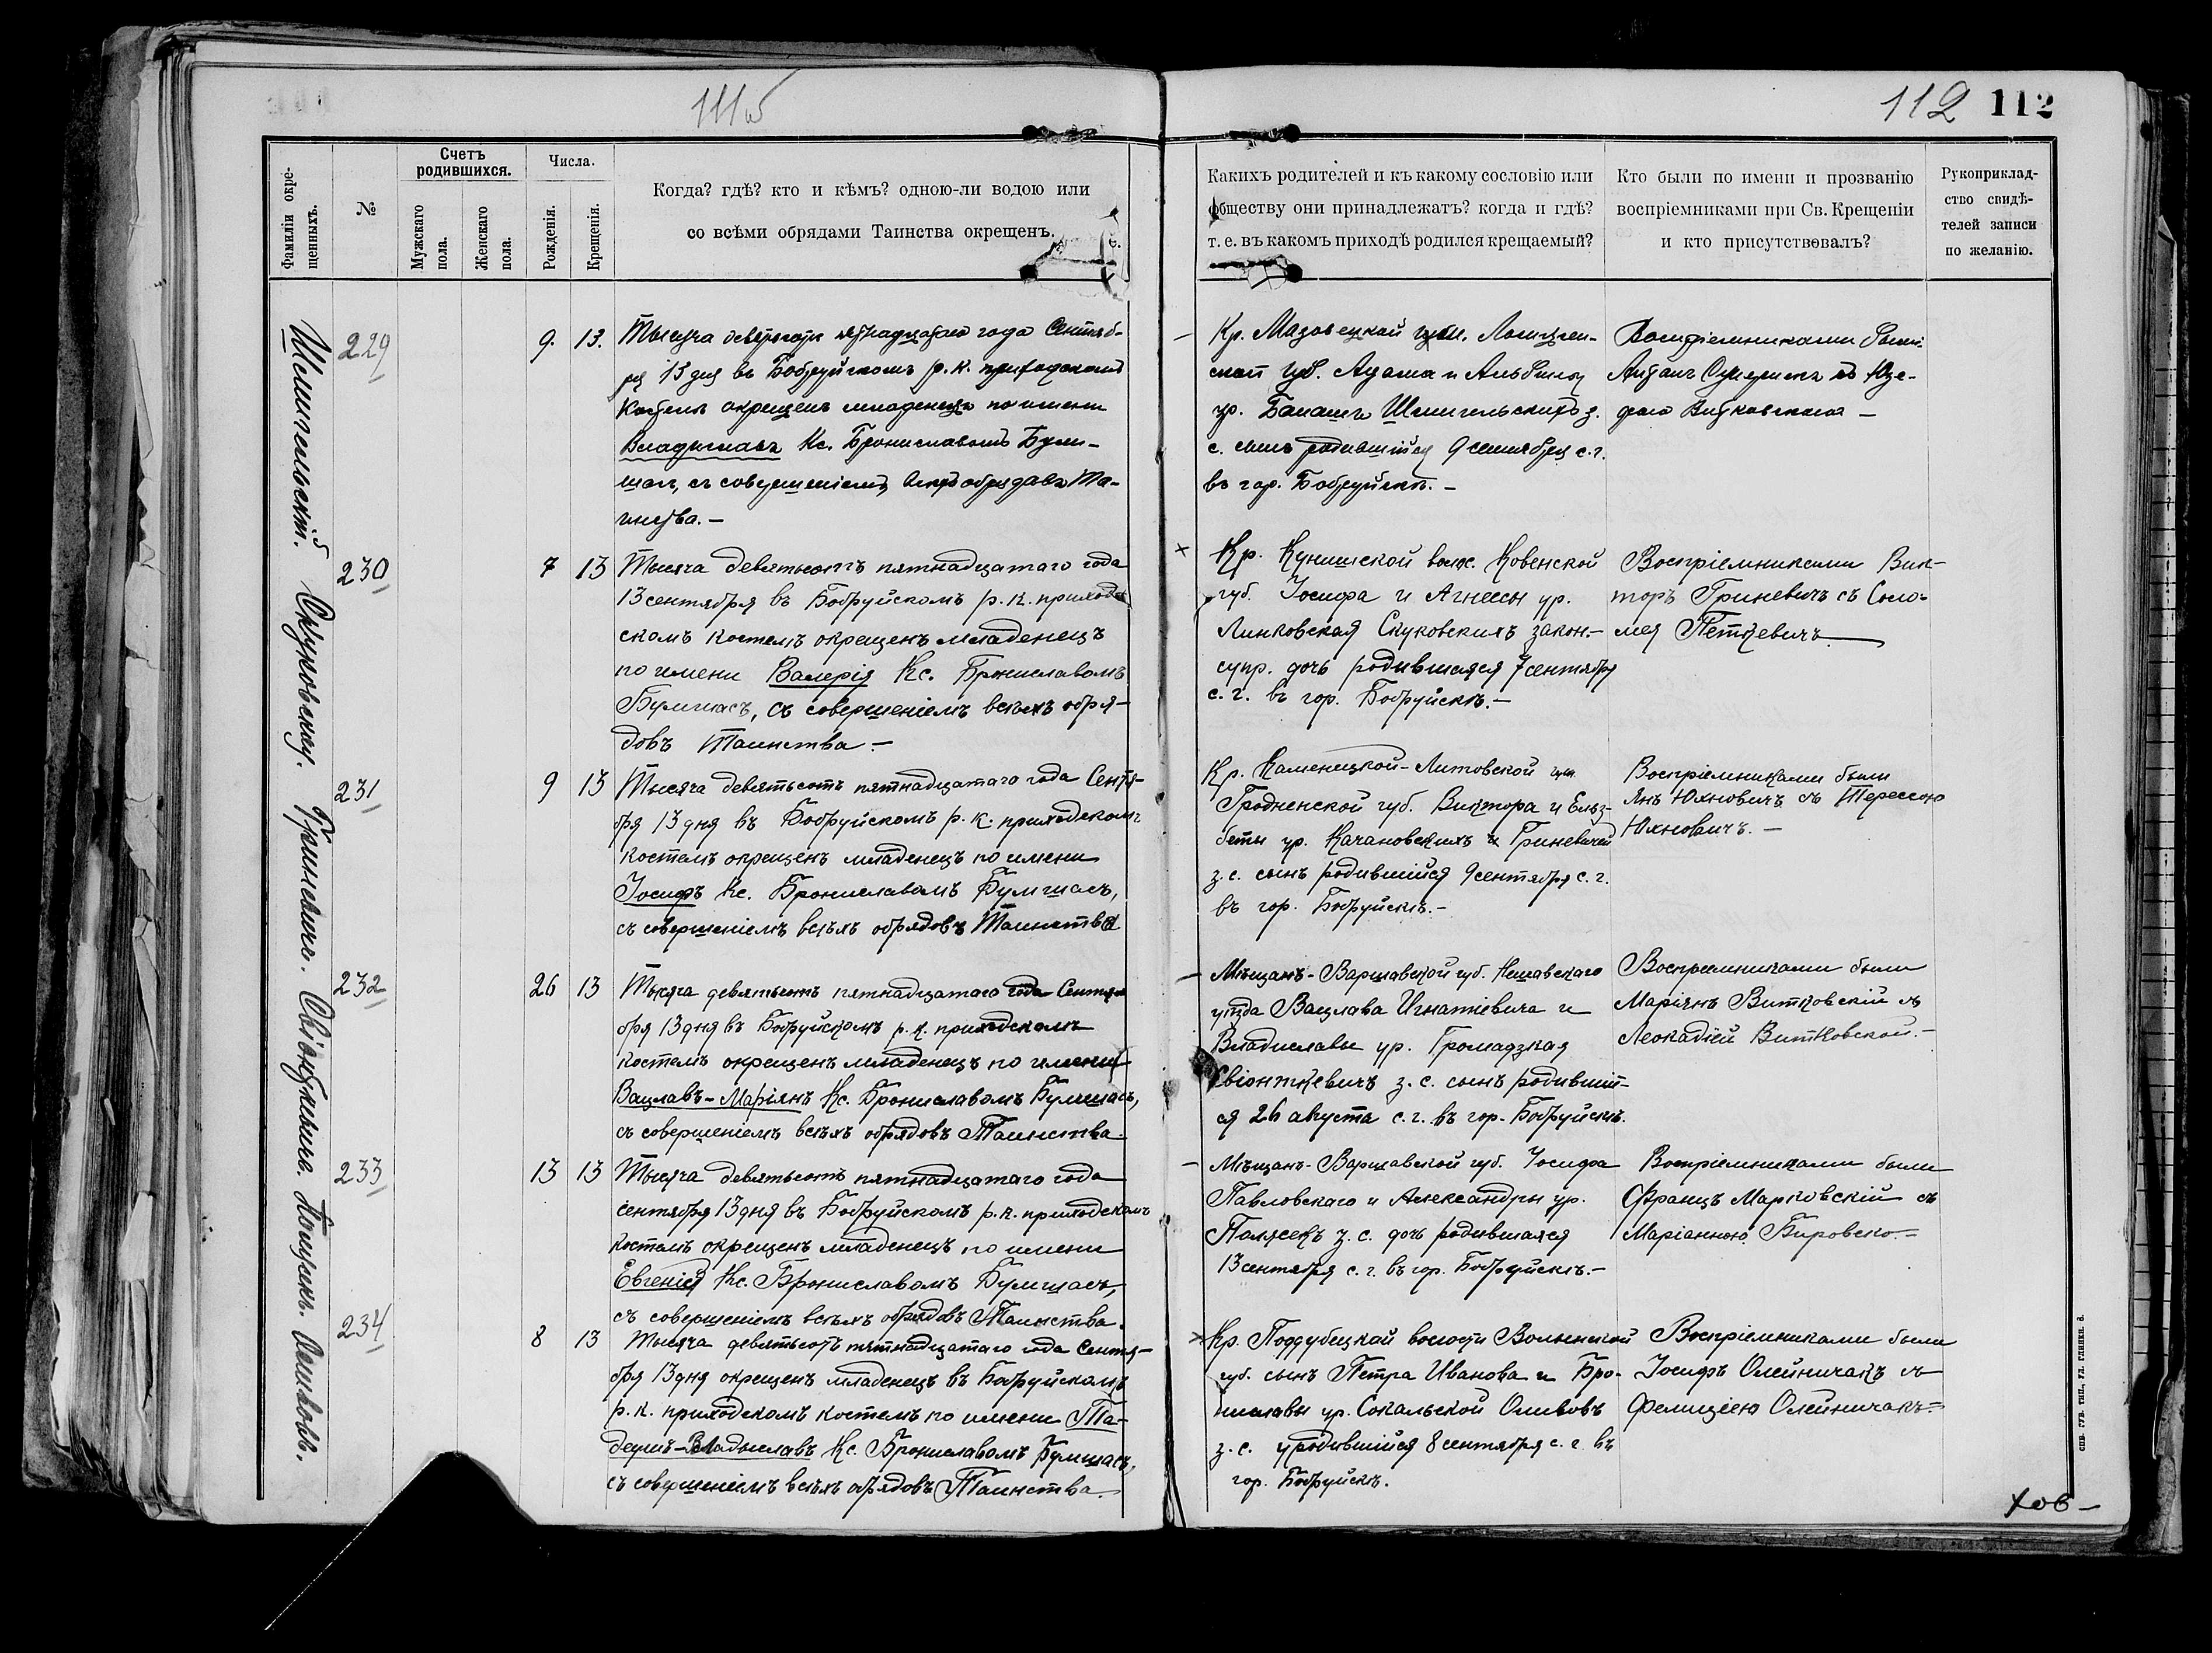 111об
112 112
Фамиліи окре-
щенныхъ.
№
Счетъ
родившихся.
Мужскаго
пола.
Женскаго
пола.
Числа.
Рожденія.
Крещенія.
Когда? гдѣ? кто и кѣмъ? одною-ли водою или
со всѣми обрядами Таинства окрещенъ.
Какихъ родителей и къ какому сословію или
обществу они принадлежатъ? когда и гдѣ?
т. е. въ какомъ приходѣ родился крещаемый?
Кто были по имени и прозванію
воспріемниками при Св. Крещеніи
и кто присутствовалъ?
Рукоприклад-
ство свидѣ-
телей записи
по желанію.
229
9. 13.
Тысяча девятьсотъ пятнадцатаго года Сентяб-
ря 13 дня въ Бобруйскомъ р. к. приходскомъ
костелѣ окрещенъ младенецъ по имени
Владиславъ Кс. Брониславомъ Бум-
шасъ, съ совершеніемъ всѣхъ обрядовъ Та-
инства. –
Кр. Мазовецкой гмин. Ломжин-
ской губ. Адама и Альбины
ур. з.
с. сынъ родившійся 9 сентября с. г.
въ гор. Бобруйскѣ. –
Воспріемниками были
Антонъ съ Юзе-
фою Витковскою –
230
7 13
Тысяча девятьсотъ пятнадцатаго года
13 сентября въ Бобруйскомъ р. к. приход-
скомъ костелѣ окрещенъ младенецъ
по имени Валерія Кс. Брониславомъ
Бумшасъ, съ совершеніемъ всѣхъ обря-
довъ Таинства –
Кр. волос. Ковенской
губ. Іосифа и Агнессы ур.
Линковская Скуковскихъ закон.-
супр. дочь родившаяся 7 сентября
с. г. въ гор. Бобруйскѣ. –
Воспріемниками Вик-
торъ Гриневичъ съ Соло-
мея Петкевичъ
231
9 13
Тысяча девятьсотъ пятнадцатаго года Сентя-
бря 13 дня въ Бобруйскомъ р. к. приходскомъ
костелѣ окрещенъ младенецъ по имени
Іосифъ Кс. Брониславомъ Бумшасъ,
съ совершеніемъ всѣхъ обрядовъ Таинства
Кр. Каменецкой-Литовской гм.
Гродненской губ. Виктора и Ельз-
беты ур. Качановскихъ и Гриневичей
з. с. сынъ родившійся 9 сентября с. г.
въ гор. Бобруйскѣ. –
Воспріемниками были
Янъ Юхновичъ съ Терессою
Юхновичъ. –
232
26 13
Тысяча девятьсотъ пятнадцатаго года Сентя-
бря 13 дня въ Бобруйскомъ р. к. приходскомъ
костелѣ окрещенъ младенецъ по имени
Вацлавъ-Маріянъ Кс. Брониславомъ Бумшасъ,
съ совершеніемъ всѣхъ обрядовъ Таинства.
Мѣщанъ-Варшавской губ. Нешавскаго
уѣзда Вацлава Игнатіевича и
Владиславы ур. Громадзкая
Свіонткевичъ з. с. сынъ родившій-
ся 26 августа с. г. въ гор. Бобруйскѣ.
Воспріемниками были
Маріянъ Витковскій съ
Леокадіей Витковской. –
233
13 13
Тысяча девятьсотъ пятнадцатаго года
сентября 13 дня въ Бобруйскомъ р. к. приходскомъ
костелѣ окрещенъ младенецъ по имени
Евгенія Кс. Брониславомъ Бумшасъ,
съ совершеніемъ всѣхъ обрядовъ Таинства.
Мѣщанъ-Варшавской губ. Іосифа
Павловскаго и Александры ур.
з. с. дочь родившаяся
13 сентября с. г. въ гор. Бобруйскѣ. –
Воспріемниками были
Францъ Марковскій съ
Маріанною –
234
8 13
Тысяча девятьсотъ пятнадцатаго года Сентя-
бря 13 дня окрещенъ младенецъ въ Бобруйскомъ
р. к. приходскомъ костелѣ по имени Та-
деушъ-Владыславъ Кс. Брониславомъ Бумшасъ,
съ совершеніемъ всѣхъ обрядовъ Таинства.
Кр. Поддубецкой волости Волынской
губ. сынъ Петра Иванова и Бро-
ниславы ур. Сокальской Оливовъ
з. с. родившійся 8 сентября с. г. въ
гор. Бобруйскѣ.
Воспріемниками были
Іосифъ Олейничакъ съ
Фелиціею Олейничакъ. –
СПБ. ГУБ. ТИП., УЛ. ГЛИНКИ, 6.